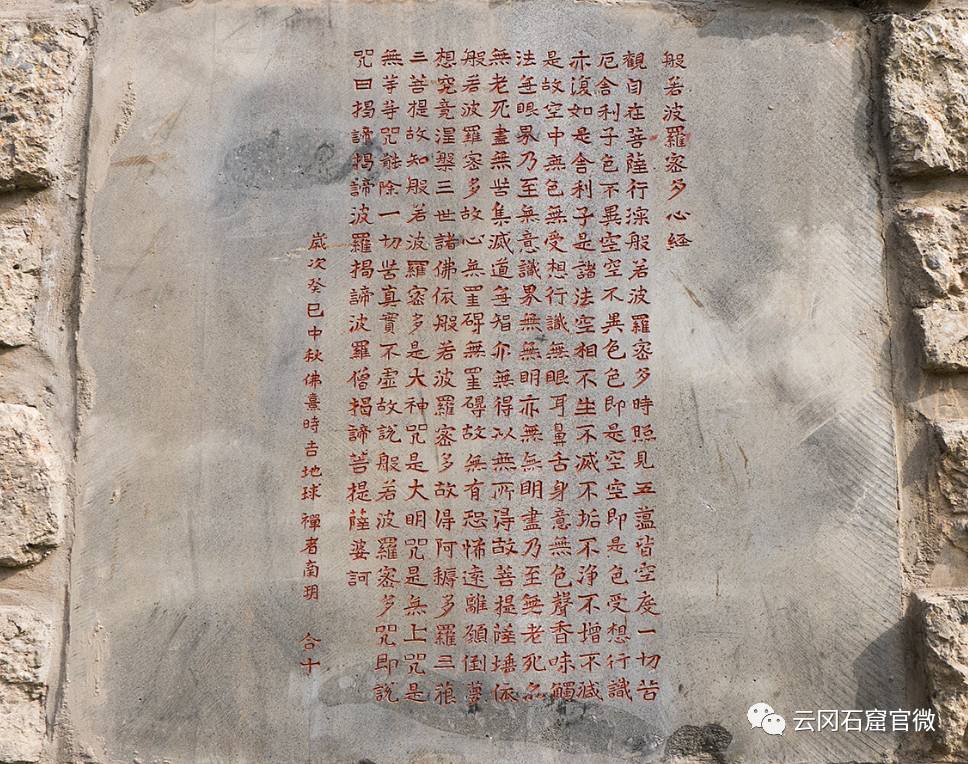 般若波羅密多心経
観自在菩薩行深般若波羅密多時照見五蘊皆空度一切苦
厄舍利子色不異空空不異色色即是空空即是色受想行識
亦復如是舍利子是諸法空相不生不滅不垢不淨不增不減
是故空中無色無受想行識無眼耳鼻舌身意無色聲香味觸
法無眼界乃至無意識界無無明亦無無明盡乃至無老死亦
無老死盡無苦集滅道無智亦無得以無所得故菩提薩埵依
般若波羅密多故心無罣礙無罣礙故無有恐怖遠離顛倒夢
想究竟涅槃三世諸佛依般若波羅密多故得阿耨多羅三藐
三菩提故知般若波羅密多是大神咒是大明咒是無上咒是
無等等咒能除一切苦真實不虛故說般若波羅密多咒即說
咒曰揭諦揭諦波羅揭諦波羅僧揭諦菩提薩婆訶
歲次癸巳中秋佛熹時吉地球禪者南玥 合十
云冈石窟官微